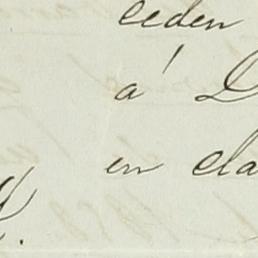 ceden
á D
en cla